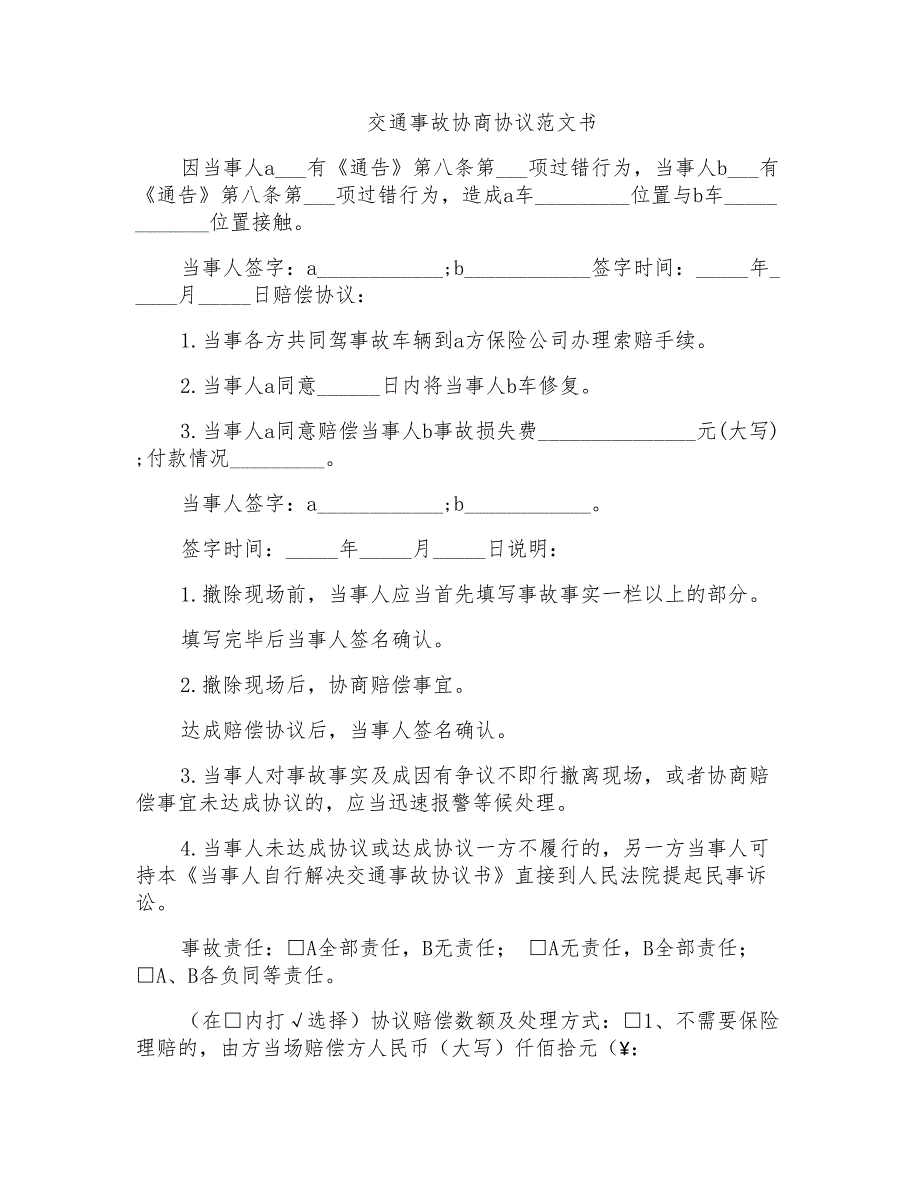 交通事故协商协议范文书
因当事人a___有《通告》第八条第___项过错行为，当事人b___有
《通告》第八条第___项过错行为，造成a车_________位置与b车_____
_______位置接触。
当事人签字：a____________;b____________签字时间：_____年_
____月_____日赔偿协议：
1.当事各方共同驾事故车辆到a方保险公司办理索赔手续。
2.当事人a同意______日内将当事人b车修复。
3.当事人a同意赔偿当事人b事故损失费_______________元(大写)
;付款情况_________。
当事人签字：a____________;b____________。
签字时间：_____年_____月_____日说明：
1.撤除现场前，当事人应当首先填写事故事实一栏以上的部分。
填写完毕后当事人签名确认。
2.撤除现场后，协商赔偿事宜。
达成赔偿协议后，当事人签名确认。
3.当事人对事故事实及成因有争议不即行撤离现场，或者协商赔
偿事宜未达成协议的，应当迅速报警等候处理。
4.当事人未达成协议或达成协议一方不履行的，另一方当事人可
持本《当事人自行解决交通事故协议书》直接到人民法院提起民事诉
讼。
事故责任：□A全部责任，B无责任； □A无责任，B全部责任；
□A、B各负同等责任。
（在□内打√选择）协议赔偿数额及处理方式：□1、不需要保险
理赔的，由方当场赔偿方人民币（大写）仟佰拾元（¥：